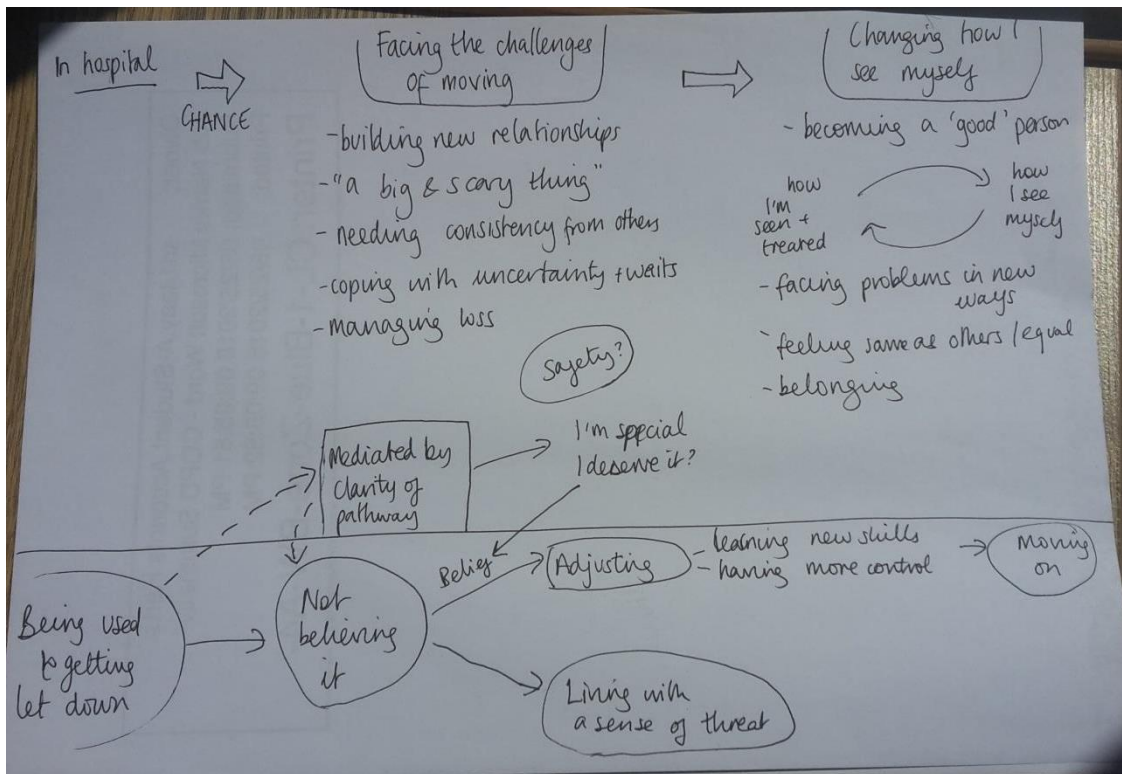 In hospital
CHANCE
Facing the challenges
of moving
- building new relationships
- "a big & scary thing"
- needing consistency from others
- coping with uncertainty + waits
- managing loss
Changing how I
see myself
- becoming a 'good' person
how
I'm
seen +
treated
how
I see
myself
- facing problems in new
ways
- feeling same as others / equal
- belonging
Safety?
Mediated by
clarity of
pathway
I'm special
I deserve it?
Being used
to getting
let down
Not
believing
it
Belief
Adjusting
- learning new skills
- having more control
Moving
on
Living with
a sense of threat